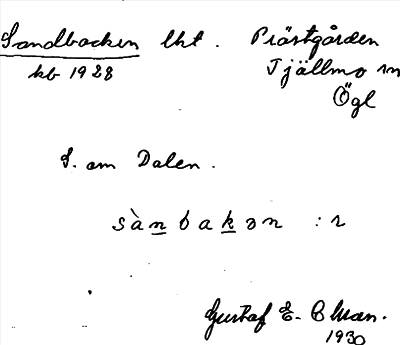 Sandbacken lht. Prästgården
kb 1928 Tjällmo sn
Ögl
S. om Dalen.
sànbakən :r
Gustaf E-
1930